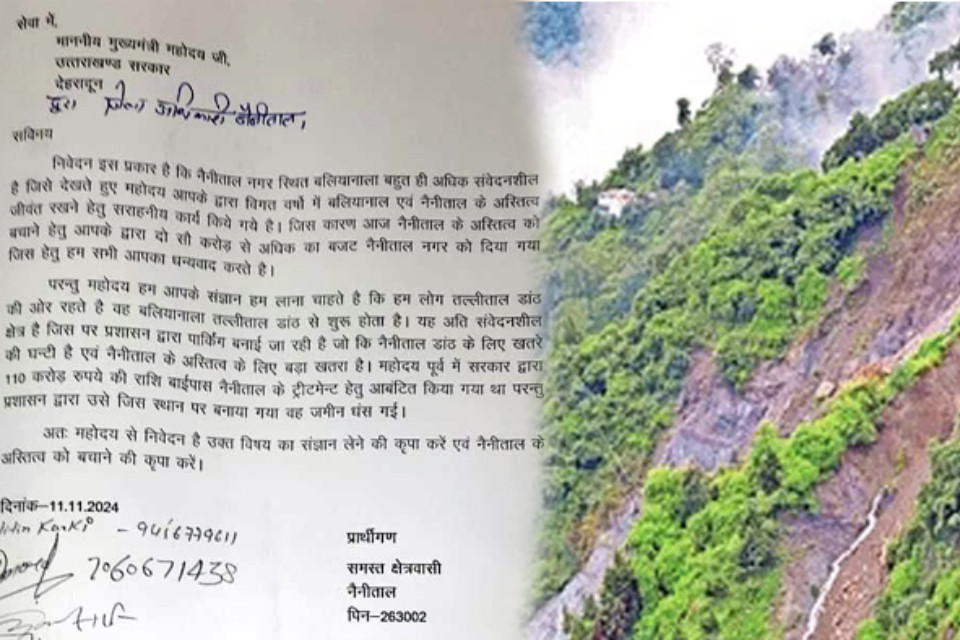 सेवा में,
माननीय मुख्यमंत्री महोदय जी,
उत्तराखण्ड सरकार
देहरादून
द्वारा जिला अधिकारी नैनीताल,
सविनय
निवेदन इस प्रकार है कि नैनीताल नगर स्थित बलियानाला बहुत ही अधिक संवेदनशील
है जिसे देखते हुए महोदय आपके द्वारा विगत वर्षो में बलियानाल एवं नैनीताल के अस्तित्व
जीवंत रखने हेतु सराहनीय कार्य किये गये है। जिस कारण आज नैनीताल के अस्तित्व को
बचाने हेतु आपके द्वारा दो सौ करोड़ से अधिक का बजट नैनीताल नगर को दिया गया
जिस हेतु हम सभी आपका धन्यवाद करते है।
परन्तु महोदय हम आपके संज्ञान हम लाना चाहते है कि हम लोग तल्लीताल डांठ
की ओर रहते है वह बलियानाला तल्लीताल डांठ से शुरू होता है। यह अति संवेदनशील
क्षेत्र है जिस पर प्रशासन द्वारा पार्किंग बनाई जा रही है जो कि नैनीताल डांठ के लिए खतरे
की घन्टी है एवं नैनीताल के अस्तित्व के लिए बड़ा खतरा है। महोदय पूर्व में सरकार द्वारा
110 करोड़ रुपये की राशि बाईपास नैनीताल के ट्रीटमेन्ट हेतु आबंटित किया गया था परन्तु
प्रशासन द्वारा उसे जिस स्थान पर बनाया गया वह जमीन धंस गई।
अतः महोदय से निवेदन है उक्त विषय का संज्ञान लेने की कृपा करें एवं नैनीताल के
अस्तित्व को बचाने की कृपा करें।
दिनांक-11.11.2024
Karki - 9416779611
प्रार्थीगण
7060671438
समस्त क्षेत्रवासी
नैनीताल
पिन-263002